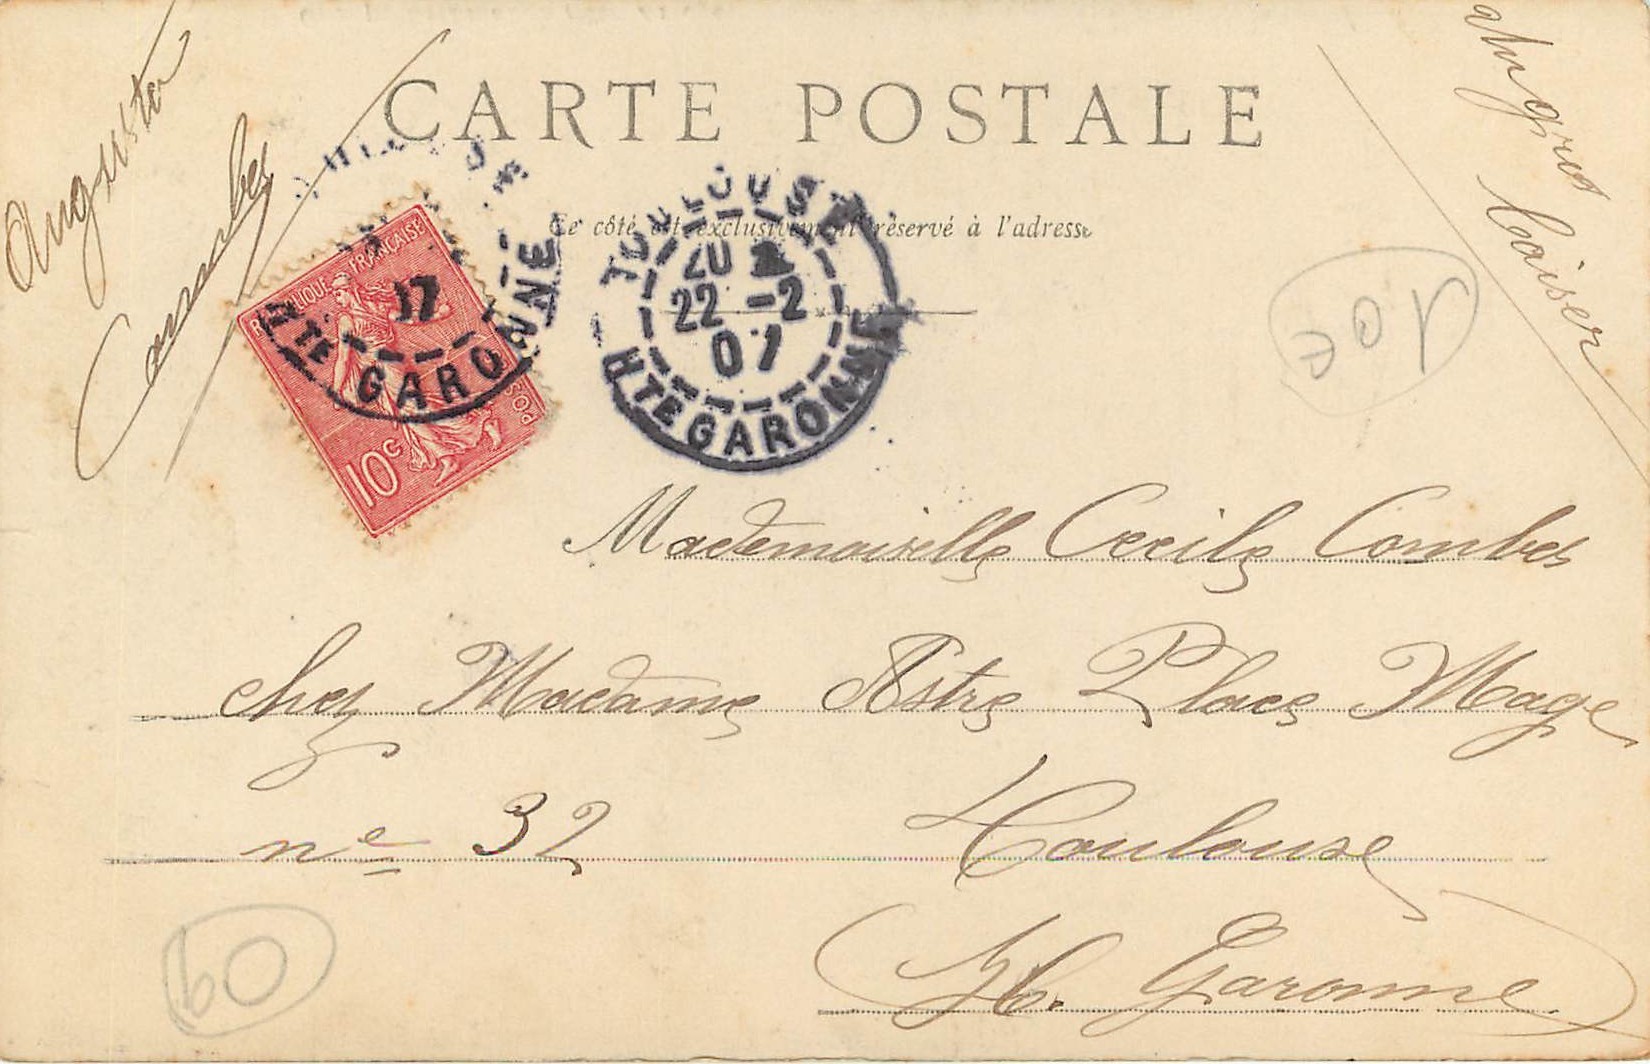 CARTE POSTALE
Ce côté est exclusivement réservé à l'adresse
Augusta
Combes
un gros
baiser
RÉPUBLIQUE FRANÇAISE
POSTES
10c
17
HTE GARONNE
TOULOUSE
20
22 -2
07
HTE GARONNE
10€
Mademoiselle Cecile Combes
chez Madame Astre Place Mage
ne 32 Toulouse
Hte Garonne
60